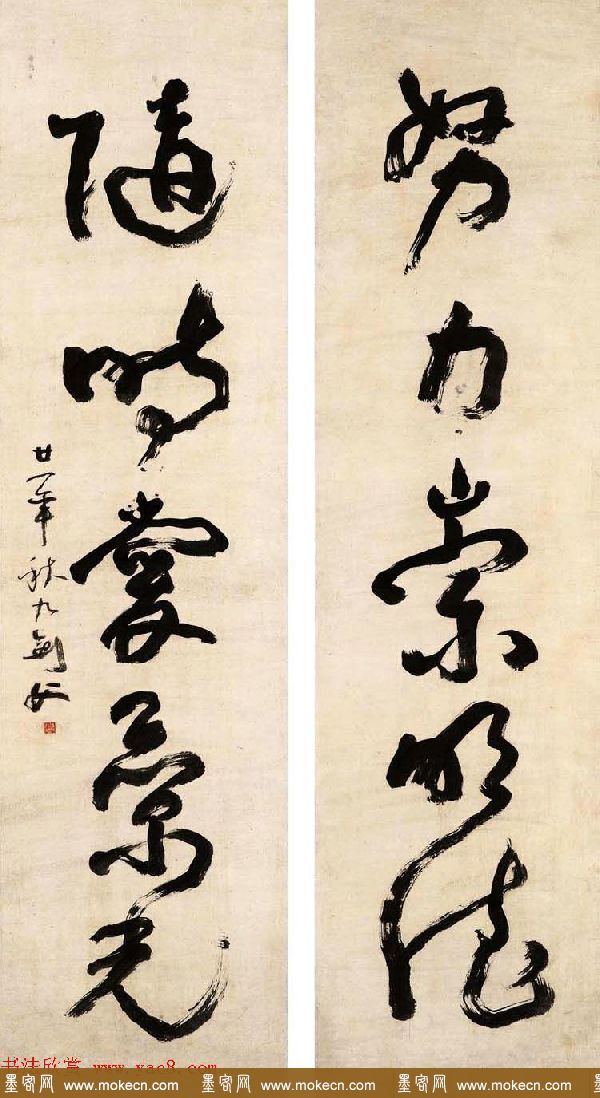 努力崇明德
隨時愛景光
廿一年秋九劍父
书法欣赏 www.yac8.com
墨客网 www.mokecn.com 墨客网 www.mokecn.com 墨客网 www.mokecn.com